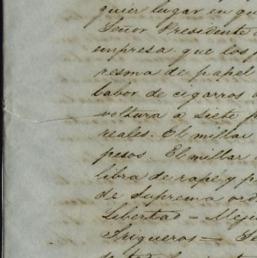 quier lugar en qu
Señor Presidente
empresa que los p
resma de papel
labor de cigarros
voltura a siete p
reales. El millar
pesos. El millar
libra de rapé y p
de Suprema ord
Libertad — Meji
Trigueros — Se